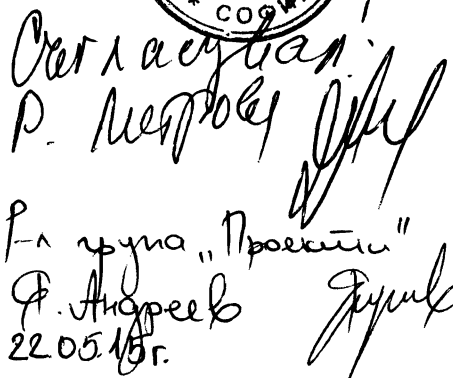 * СОФИЯ
Съгласувал:
Р. Петров
Р-л група „Проекти"
Ф. Андреев
22.05.15г.